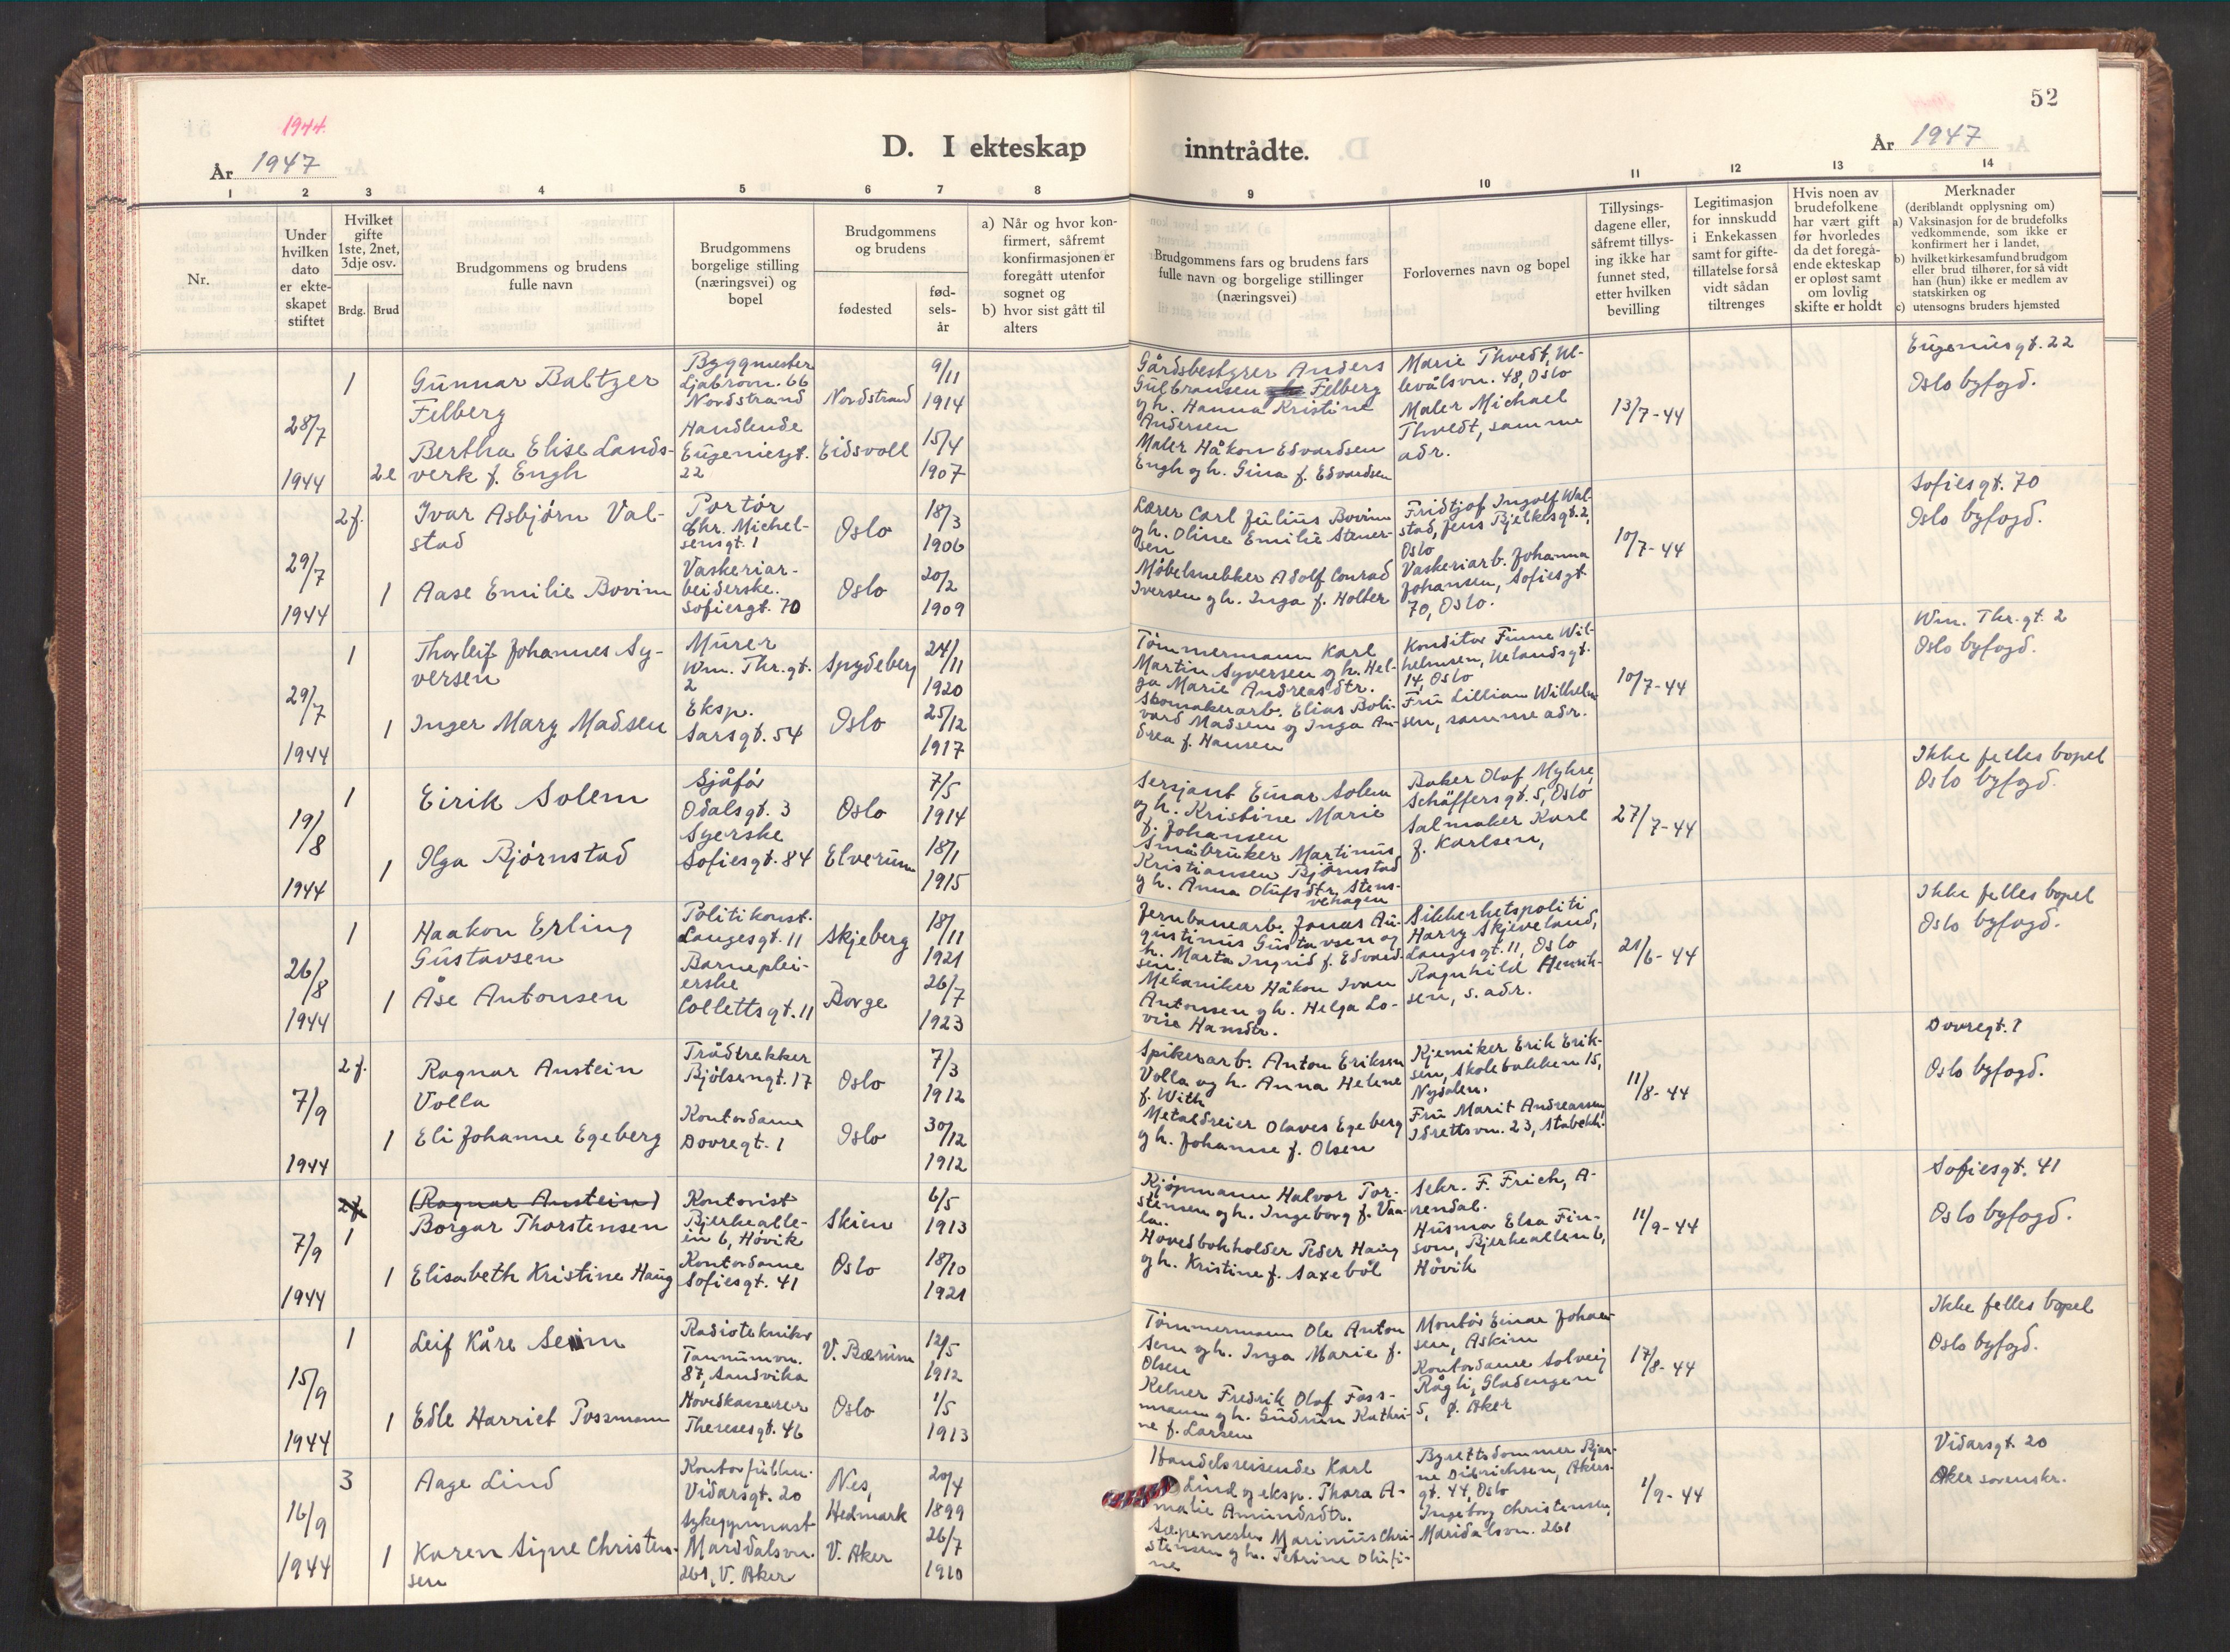 1944.
År 1947
D. I ekteskap inntrådte.
52
År 1947
1 2 3 4 5 6 7 8 9 10 11 12 13 14
Nr.
Under hvilken dato er ekte-skapet stiftet
Hvilket gifte 1ste, 2net, 3dje osv.
Brdg. Brud
Brudgommens og brudens fulle navn
Brudgommens borgelige stilling (næringsvei) og bopel
Brudgommens og brudens
fødested
fød-sels-år
a) Når og hvor kon-firmert, såfremt konfirmasjonen er foregått utenfor sognet og
b) hvor sist gått til alters
Brudgommens fars og brudens fars fulle navn og borgelige stillinger (næringsvei)
Forlovernes navn og bopel
Tillysings-dagene eller, såfremt tillys-ing ikke har funnet sted, etter hvilken bevilling
Legitimasjon for innskudd i Enkekassen samt for gifte-tillatelse for så vidt sådan tiltrenges
Hvis noen av brudefolkene har vært gift før hvorledes da det foregå-ende ekteskap er opløst samt om lovlig skifte er holdt
Merknader
(deriblandt opplysning om)
a) Vaksinasjon for de brudefolks vedkommende, som ikke er konfirmert her i landet,
b) hvilket kirkesamfund brudgom eller brud tilhører, for så vidt han (hun) ikke er medlem av statskirken og
c) utensogns bruders hjemsted
28/7 1944
1
Gunnar Baltzer
Felberg
Byggmester
Ljabrovn. 66
Nordstrand
Nordstrand
9/11 1914
2e
Bertha Elise Lands-
verk f. Engh
Handlende
Eugeniesgt.
22
Eidsvoll
15/4 1907
Gårdsbestyrer Anders
Gulbransen Felberg
og h. Hanna Kristine
Andersen
Maler Håkon Edvardsen
Engh og h. Gina f. Edvardsen
Marie Thvedt, Ul-
levålsvn. 48, Oslo
Maler Michael
Thvedt, samme
adr.
13/7-44
Eugeniusgt. 22
Oslo byfogd.
29/7 1944
2f.
Ivar Asbjørn Val-
stad
Portør
Chr. Michel-
sensgt. 1
Oslo
18/3 1906
1
Aase Emilie Bovim
Vaskeriar-
beiderske.
Sofiesgt. 70
Oslo
20/2 1909
Lærer Carl Julius Bovim
og h. Oline Emilie Stener-
sen
Møbelsnekker Adolf Conrad
Iversen og h. Inga f. Holter
Fridtjof Ingolf Wal-
stad, Jens Bjelkesgt. 2,
Oslo
Vaskeriarb. Johanna
Johansen, Sofiesgt
70, Oslo.
10/7-44
Sofiesgt. 70
Oslo byfogd.
29/7 1944
1
Thorleif Johannes Sy-
versen
Murer
Wm. Thr. gt.
2
Spydeberg
24/11 1920
1
Inger Mary Madsen
Eksp.
Sarsgt. 54
Oslo
25/12 1917
Tømmermann Karl
Martin Syversen og h. Hel-
ga Marie Andreasdtr.
Skomakerarb. Elias Boli-
vard Madsen og Inga An-
drea f. Hansen
Konditor Finne Wil-
helmsen, Uelandsgt.
14, Oslo
Fru Lillian Wilhelm-
sen, samme adr.
10/7-44
Wm. Thr. gt. 2
Oslo byfogd.
19/8 1944
1
Eirik Solem
Sjåfør
Odalsgt. 3
Oslo
7/5 1914
1
Olga Bjørnstad
Syerske
Sofiesgt. 84
Elverum
18/1 1915
Sersjant Einar Solem
og h. Kristine Marie
f. Johansen
Småbruker Martinus
Kristiansen Bjørnstad
og h. Anna Olufsdtr. Stens-
vehagen
Baker Olaf Myhre,
Schäffersgt. 5, Oslo
Salmaker Karl
f. Karlsen,
27/7-44
Ikke felles bopel
Oslo byfogd.
26/8 1944
1
Haakon Erling
Gustavsen
Politikonst.
Langesgt. 11
Skjeberg
18/11 1921
1
Åse Antonsen
Barneplei-
erske
Collettsgt. 11
Borge
26/7 1923
Jernbanearb. Jonas Au-
gustinus Gustavsen og
h. Marta Ingrid f. Edvard-
sen.
Mekaniker Håkon Ivan
Antonsen og h. Helga Lo-
vise Hansdtr.
Sikkerhetspoliti
Harry Skjeveland,
Langesgt. 11, Oslo
Ragnhild Henrik-
sen, s. adr.
21/6-44
Ikke felles bopel
Oslo byfogd.
7/9 1944
2f.
Ragnar Anstein
Volla
Trådtrekker
Bjølsengt. 17
Oslo
7/3 1912
1
Eli Johanne Egeberg
Kontordame
Dovregt. 1
Oslo
30/12 1912
Spikerarb. Anton Eriksen
Volla og h. Anna Helene
f. With
Metaldreier Olaves Egeberg
og h. Johanne f. Olsen
Kjemiker Erik Erik-
sen, Skolebakken 15,
Nydalen.
Fru Marit Andreassen,
Idrettsvn. 23, Stabekk.
11/8-44
Dovregt. 1
Oslo byfogd.
7/9 1944
2f.
1
(Ragnar Anstein)
Borgar Thorstensen
Kontorist
Bjerkealle-
en 6, Høvik
Skien
6/5 1913
1
Elisabeth Kristine Haug
Kontordame
Sofiesgt. 41
Oslo
18/10 1921
Kjøpmann Halvor Tor-
stensen og h. Ingeborg f. Vaa-
la.
Hovedbokholder Peder Haug
og h. Kristine f. Saxebøl
Sekr. F. Frich, A-
rendal.
Husmor Elsa Fin-
son, Bjerkealleen 6,
Høvik
11/9-44
Sofiesgt. 41
Oslo byfogd.
15/9 1944
1
Leif Kåre Seim
Radiotekniker
Tanumvn.
87, Sandvika
V. Bærum
12/5 1912
1
Edle Harriet Possmann
Hovedkasserer
Theresesgt. 46
Oslo
1/5 1913
Tømmermann Ole Anton
Sem og h. Inga Marie f.
Olsen
Kelner Fredrik Olaf Foss-
mann og h. Gudrun Kathri-
ne f. Larsen
Montør Einar Johan-
sen, Askim
Kontordame Solveig
Rågli, Gladengen
5, Ø. Aker
17/8-44
Ikke felles bopel
Oslo byfogd.
16/9 1944
3
Aage Lind
Kontorfullm.
Vidarsgt. 20
Nes,
Hedmark
20/4 1899
1
Karen Signe Christen-
sen
Sykegymnast
Maridalsvn.
261, V. Aker
V. Aker
26/7 1910
Handelsreisende Karl
Lind og eksp. Thora A-
malie Amundsdtr.
Marinius Chri-
stensen og h. Petrine Olufi-
ne
Byrettsdommer Bjar-
ne Didrichsen, Akers-
gt. 44, Oslo
Ingeborg Christensen,
Maridalsvn. 261
1/9-44
Vidarsgt. 20
Aker sorenskr.